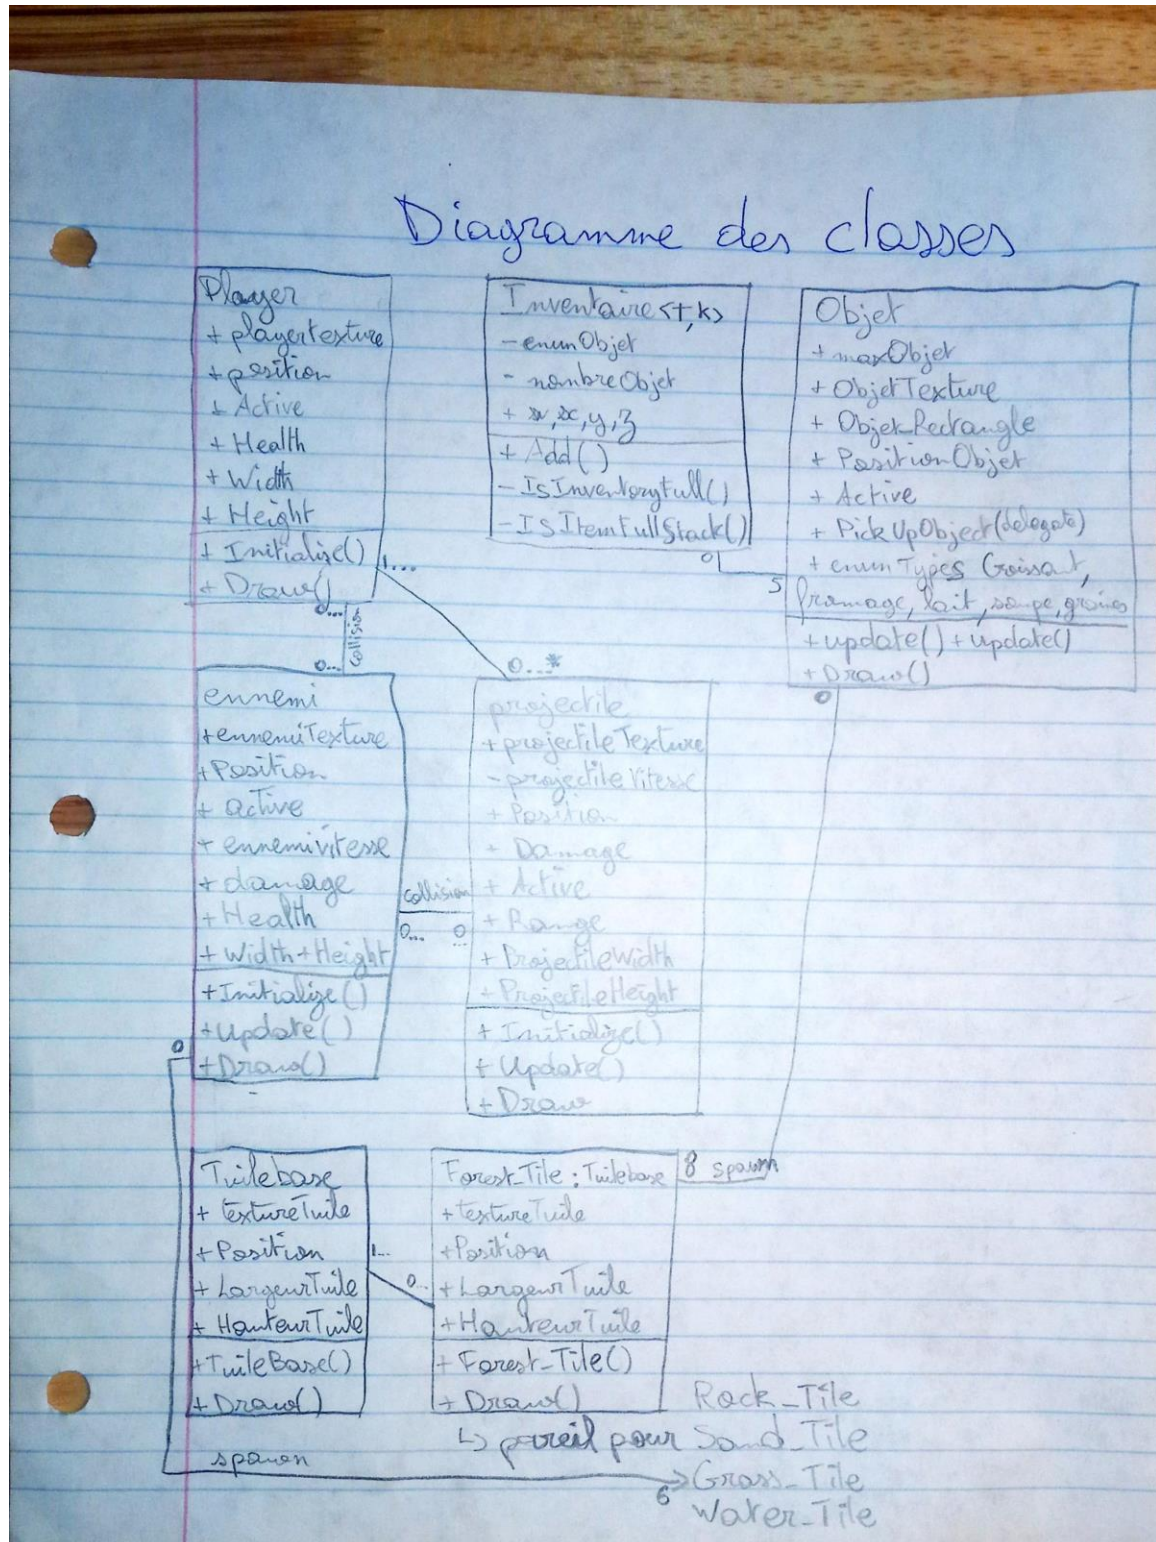 Diagramme des classes
Player
+ playerTexture
+ position
+ Active
+ Health
+ Width
+ Height
+ Initialize()
+ Draw()
Inventaire <T,K>
- enumObjet
- nombreObjet
x, y, z
+ Add()
- IsInventoryFull()
- IsItemFullStack()
Objet
+ maxObjet
+ ObjetTexture
+ Objet_Rectangle
+ PositionObjet
+ Active
+ PickUpObject(delegate)
+ enum Types Croissant,
fromage, lait, soupe, graines
+ update() + update()
+ Draw()
1...
0...*
0
5
0...
collision
0...
0
ennemi
+ ennemiTexture
+ Position
+ active
+ ennemivitesse
+ damage
+ Health
+ Width + Height
+ Initialize()
+ Update()
+ Draw()
collision
0... 0...
0
projectile
+ projectileTexture
- projectileVitesse
+ Position
+ Damage
+ Active
+ Range
+ ProjectileWidth
+ ProjectileHeight
+ Initialize()
+ Update()
+ Draw
Tuilebase
+ textureTuile
+ Position
+ LargeurTuile
+ HauteurTuile
+ TuileBase()
+ Draw()
1...
0...
Forest_Tile : Tuilebase
+ textureTuile
+ Position
+ LargeurTuile
+ HauteurTuile
+ Forest_Tile()
+ Draw()
8 spawn
↳ pareil pour
Rock_Tile
Sand_Tile
Grass_Tile
Water_Tile
spawn
6